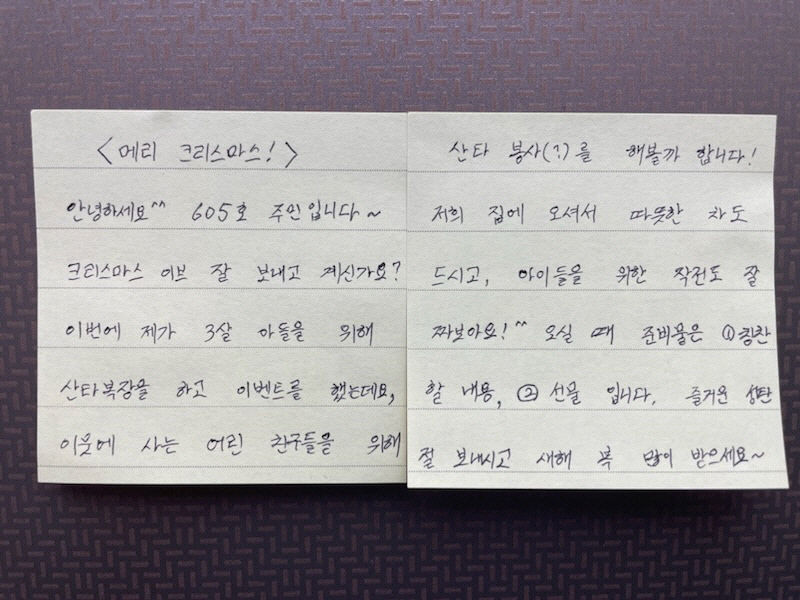 <메리 크리스마스!>
안녕하세요^^ 605호 주민입니다~
크리스마스 이브 잘 보내고 계신가요?
이번에 제가 3살 아들을 위해
산타복장을 하고 이벤트를 했는데요,
이웃에 사는 어린 친구들을 위해
산타 봉사(?)를 해볼까 합니다!
저희 집에 오셔서 따뜻한 차도
드시고, 아이들을 위한 작전도 잘
짜보아요!^^ 오실 때 준비물은 ①칭찬
할 내용, ② 선물 입니다. 즐거운 성탄
절 보내시고 새해 복 많이 받으세요~